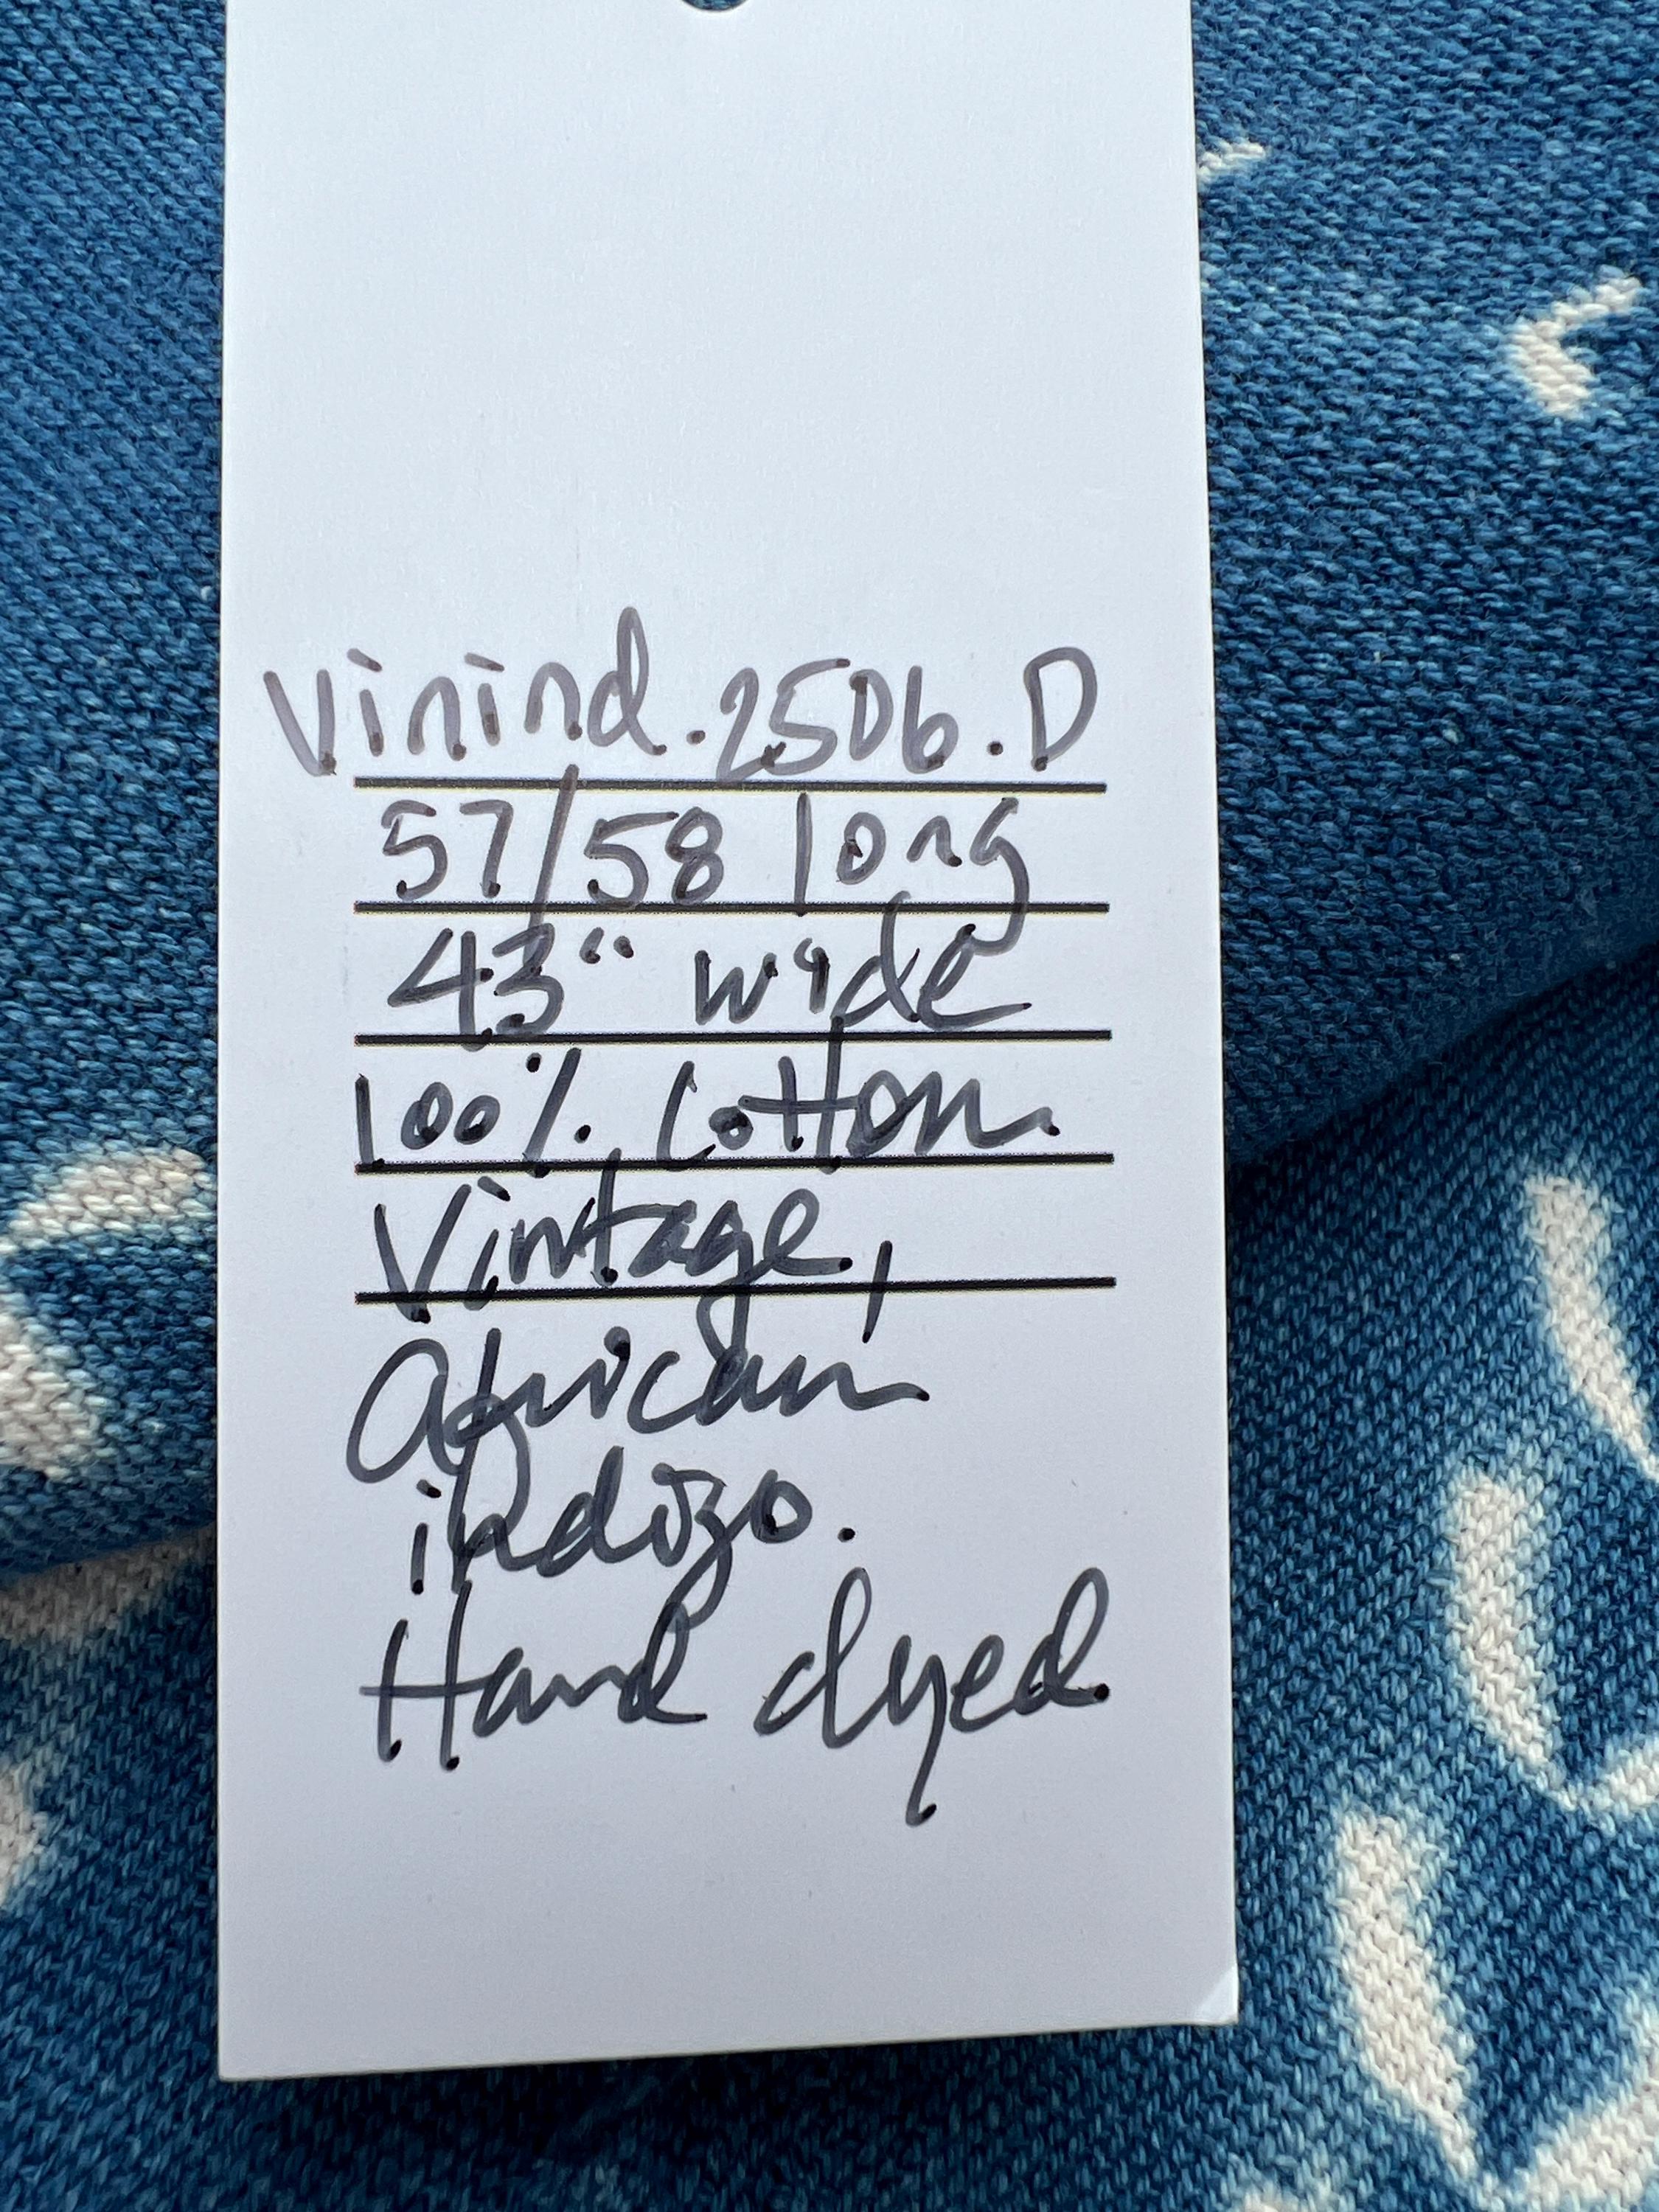 Vinind.2506.D
57/58 long
43" wide
100% Cotton.
Vintage,
African
indigo.
Hand dyed.